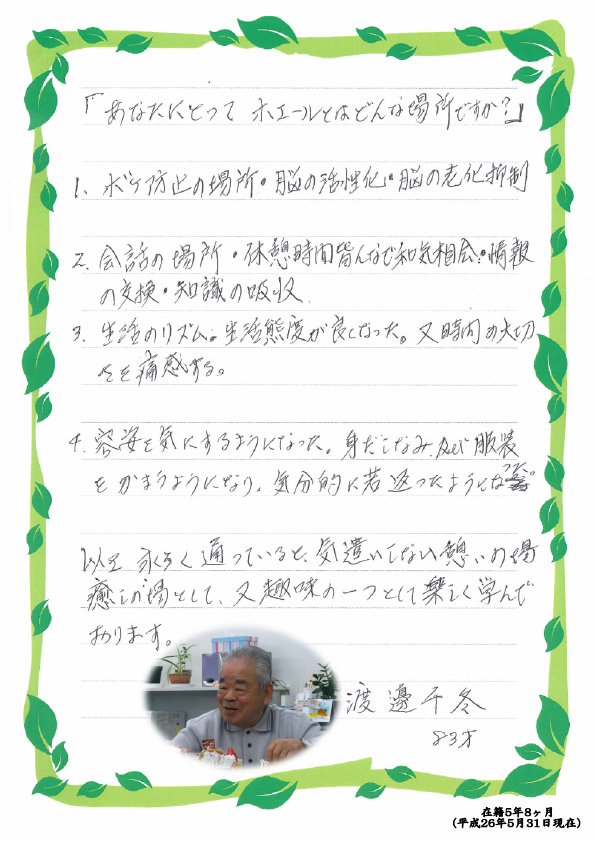 「あなたにとって ホエールとはどんな場所ですか?」
1. ボケ防止の場所・脳の活性化・脳の老化抑制
2. 会話の場所・休憩時間皆んなで和気相会・情報
の交換・知識の吸収
3. 生活のリズム。生活態度が良くなった。又時間の大切
さを痛感する。
4. 容姿を気にするようになった。身だしなみ及び服装
をかまうようになり、気分的に若返ったようになった。
以上 永らく通っていると、気遣いしない憩いの場
癒しの場として、又趣味の一つとして楽しく学んで
おります。
渡邊千冬
83才
在籍5年8ヶ月
(平成26年5月31日現在)